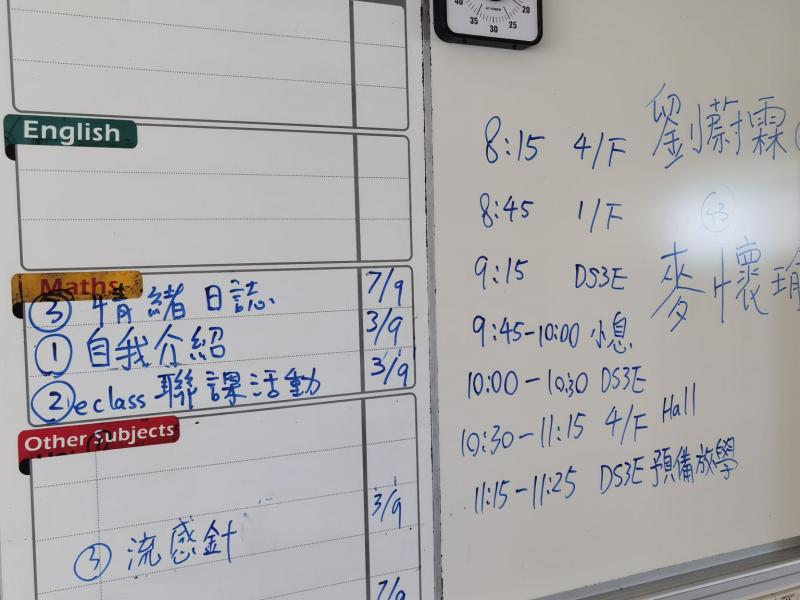 40
35
30
25
20
English
Maths
③ 情緒日誌 7/9
① 自我介紹 3/9
② eclass 聯課活動 3/9
Other Subjects
3/9
③ 流感針
7/9
8:15 4/F 劉蔚霖
8:45 1/F
43
9:15 DS3E 麥懷瑜
9:45-10:00 小息
10:00-10:30 DS3E
10:30-11:15 4/F Hall
11:15-11:25 DS3E 預備放學